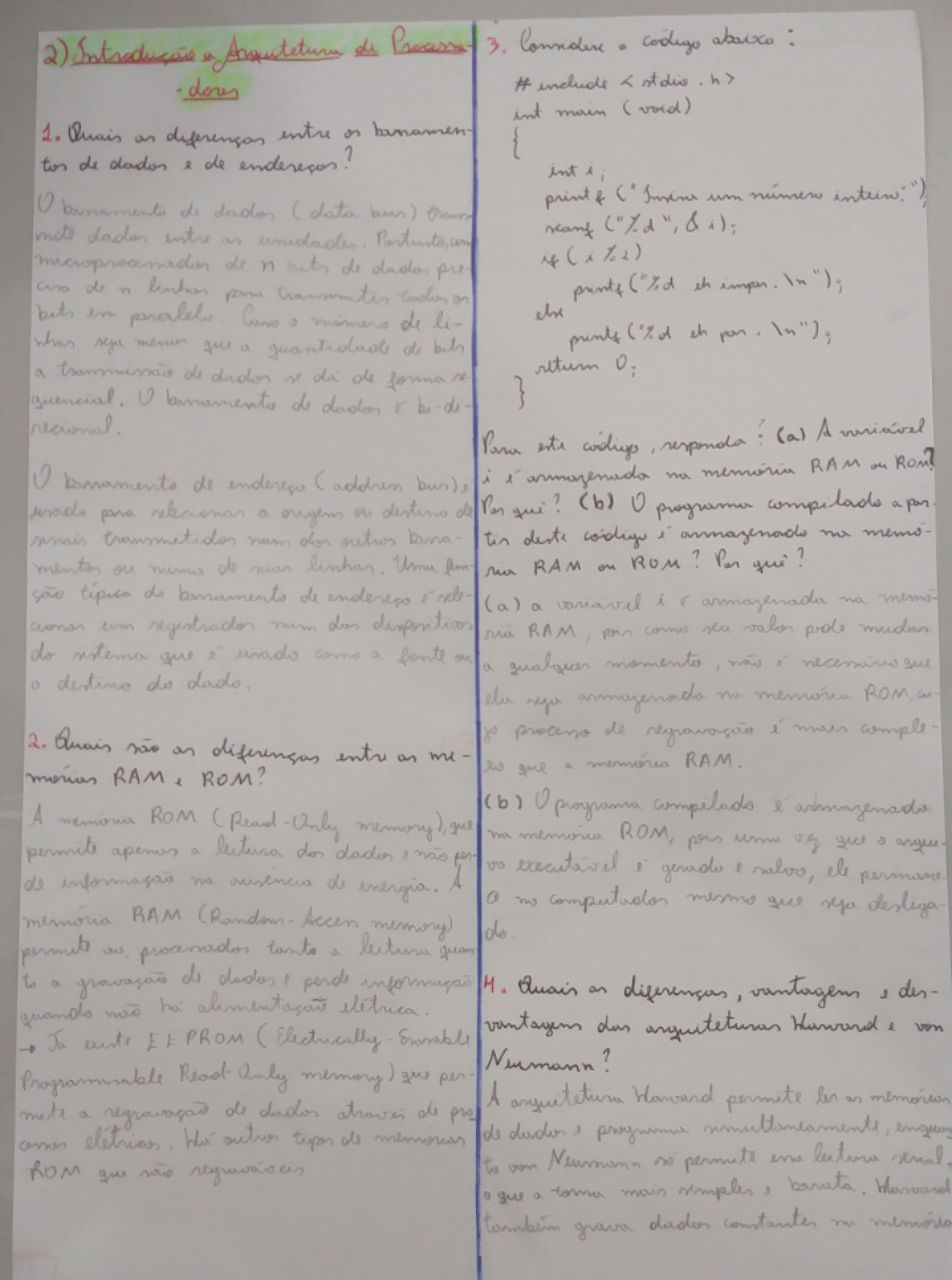 2) Introdução a Arquitetura de Processa-
-dores
1. Quais as diferenças entre os barramen-
tos de dados e de endereços?
O barramento de dados (data bus) trans-
mite dados entre as unidades. Portanto, um
microprocessador de n bits de dados pre-
cisa de n linhas para transmitir todos os
bits em paralelo. Caso o número de li-
nhas seja menor que a quantidade de bits
a transmissão de dados se dá de forma se-
quencial. O barramento de dados é bi-di-
recional.
O barramento de endereço (address bus) é
usado para selecionar a origem ou destino de
sinais transmitidos num dos outros barra-
mentos ou numa de suas linhas. Uma fun-
ção típica do barramento de endereço é sele-
cionar um registrador num dos dispositivos
do sistema que é usado como a fonte ou
o destino do dado.
2. Quais são as diferenças entre as me-
mórias RAM e ROM?
A memória ROM (Read-Only memory), que
permite apenas a leitura dos dados e não per-
de informação na ausência de energia. A
memória RAM (Random-Access memory)
permite ao processador tanto a leitura quan-
to a gravação de dados e perde informação
quando não há alimentação elétrica.
→ Já existe EEPROM (Electrically-Erasable
Programmable Read-Only memory) que per-
mite a regravação de dados através de pro
cessos elétricos. Há outros tipos de memórias
ROM que são regraváveis
3. Considere o código abaixo:
# include < stdio . h>
int main (void)
{
int i;
printf ("Insira um número inteiro:");
scanf ("%d", & i);
if ( i %2)
printf ("%d eh impar. \n");
else
printf ("%d eh par. \n");
return 0;
}
Para este código, responda: (a) A variável
i é armazenada na memória RAM ou ROM?
Por quê? (b) O programa compilado a par-
tir deste código é armazenado na memó-
ria RAM ou ROM? Por quê?
(a) a variável i é armazenada na memó-
ria RAM, pois como seu valor pode mudar
a qualquer momento, não é necessário que
ela seja armazenada na memória ROM, cu-
jo processo de regravação é mais comple-
xo que a memória RAM.
(b) O programa compilado é armazenado
na memória ROM, pois uma vez que o arqui-
vo executável é gerado e salvo, ele permane-
ce no computador mesmo que seja desliga-
do.
4. Quais as diferenças, vantagens e des-
vantagens das arquiteturas Harvard e von
Neumann?
A arquitetura Harvard permite ler as memórias
de dados e programa simultaneamente, enquan
to von Neumann só permite essa leitura serial,
o que a torna mais simples e barata. Harvard
também grava dados constantes na memória